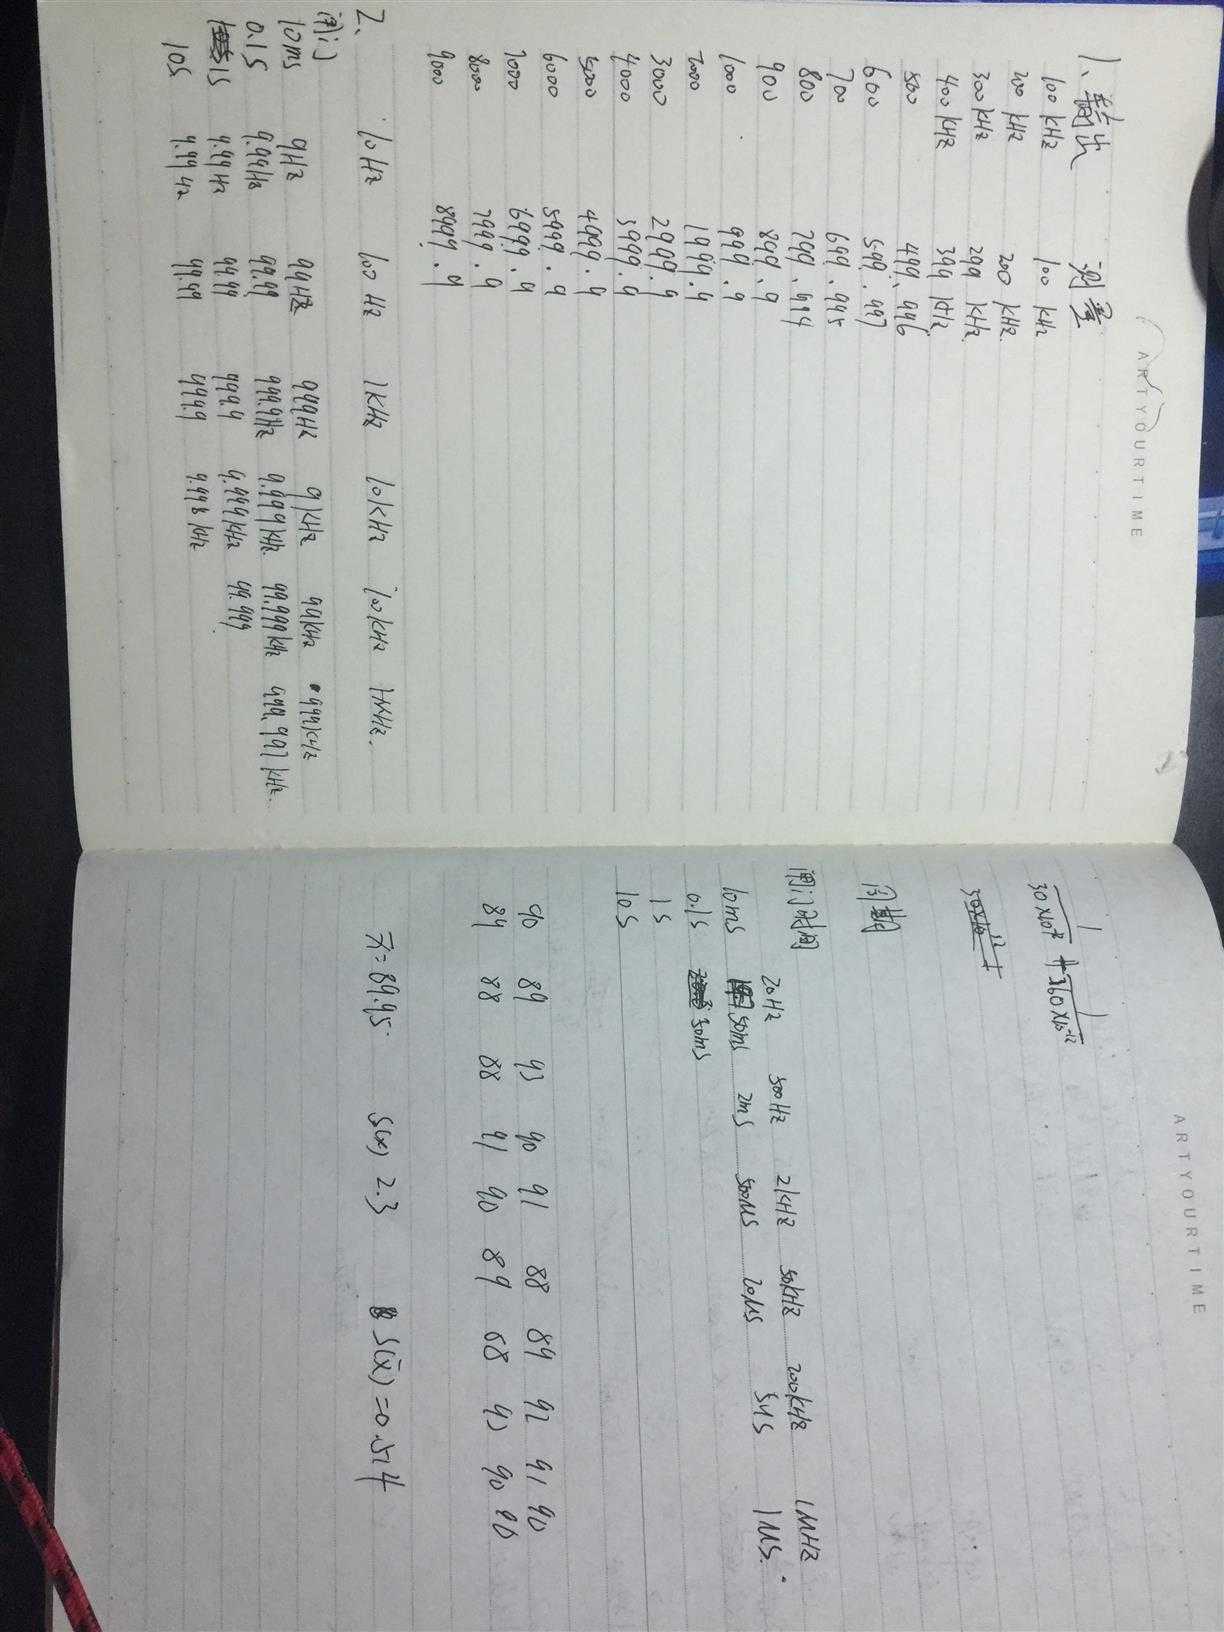 ARTYOURTIME
1、输出 测量
100 kHz 100 kHz
200 kHz 200 kHz
300 kHz 299 kHz
400 kHz 399 kHz
500 499.996
600 599.997
700 699.995
800 799.994
900 899.9
1000 999.9
2000 1999.9
3000 2999.9
4000 3999.9
5000 4999.9
6000 5999.9
7000 6999.9
8000 7999.9
9000 8999.9
2、 10Hz 100Hz 1kHz 10kHz 100kHz 1MHz
闸门
10ms 9Hz 99Hz 999Hz 9kHz 99kHz 999kHz
0.1s 9.99Hz 99.99 999.9Hz 9.999kHz 99.999kHz 999.997kHz
1s 9.99Hz 99.99 999.9 9.999kHz 99.999
10s 9.99Hz 99.99 999.9 9.998kHz
ARTYOURTIME
周期
闸门时间 20Hz 500Hz 2kHz 50kHz 200kHz 1MHz
10ms 50ms 2ms 500μs 20μs 5μs 1μs
0.1s 50ms
1s
10s
90 89 93 90 91 88 89 92 91 90
89 88 88 91 90 89 88 93 90
x̄=89.95 S(x) 2.3 S(x̄)=0.514